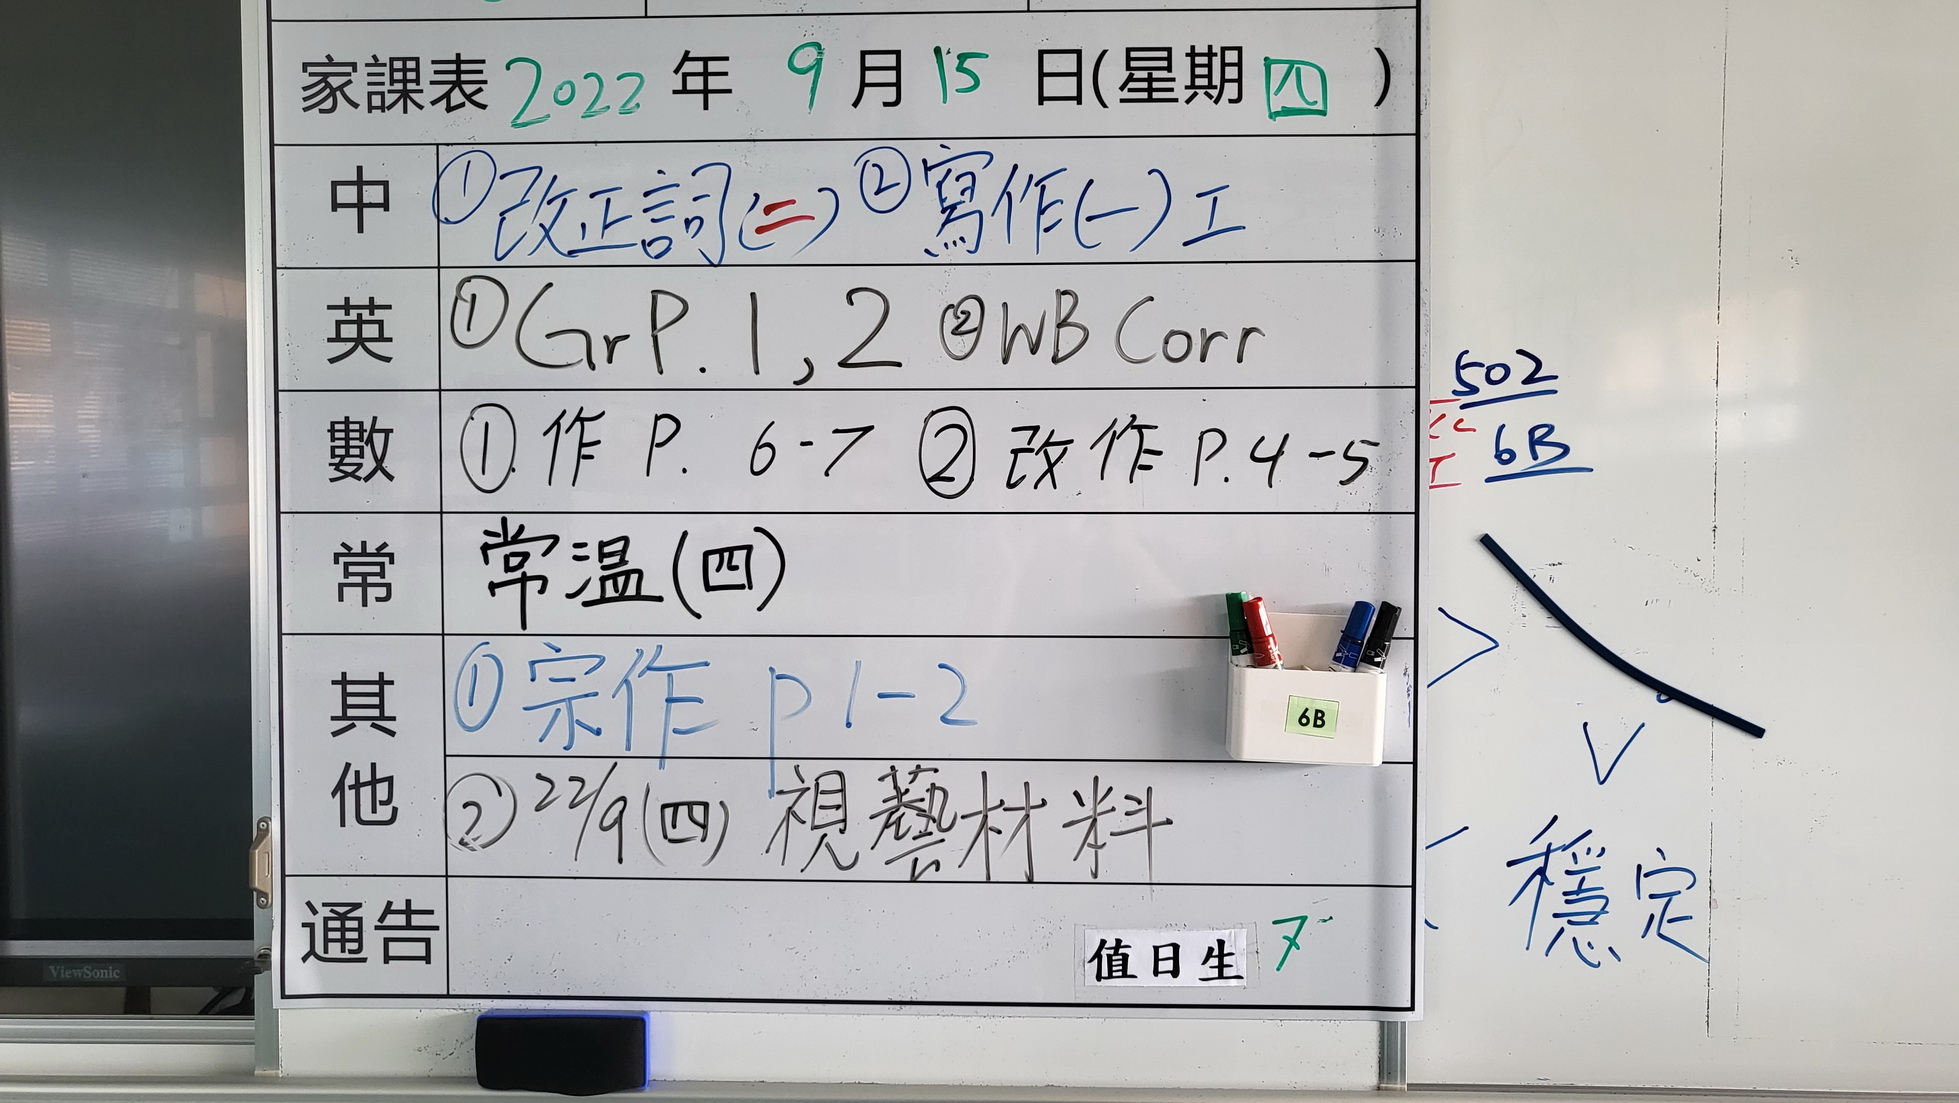 家課表 2022 年 9 月 15 日(星期 四 )
中 ① 改正詞(二) ② 寫作(一)工
英 ① Gr P. 1, 2 ② WB Corr
數 ①. 作 P. 6-7 ② 改作 P.4-5
常 常溫(四)
其他 ① 宗作 p 1-2
② 22/9(四) 視藝材料
通告 值日生 7
6B
ViewSonic
502
6B
穩定